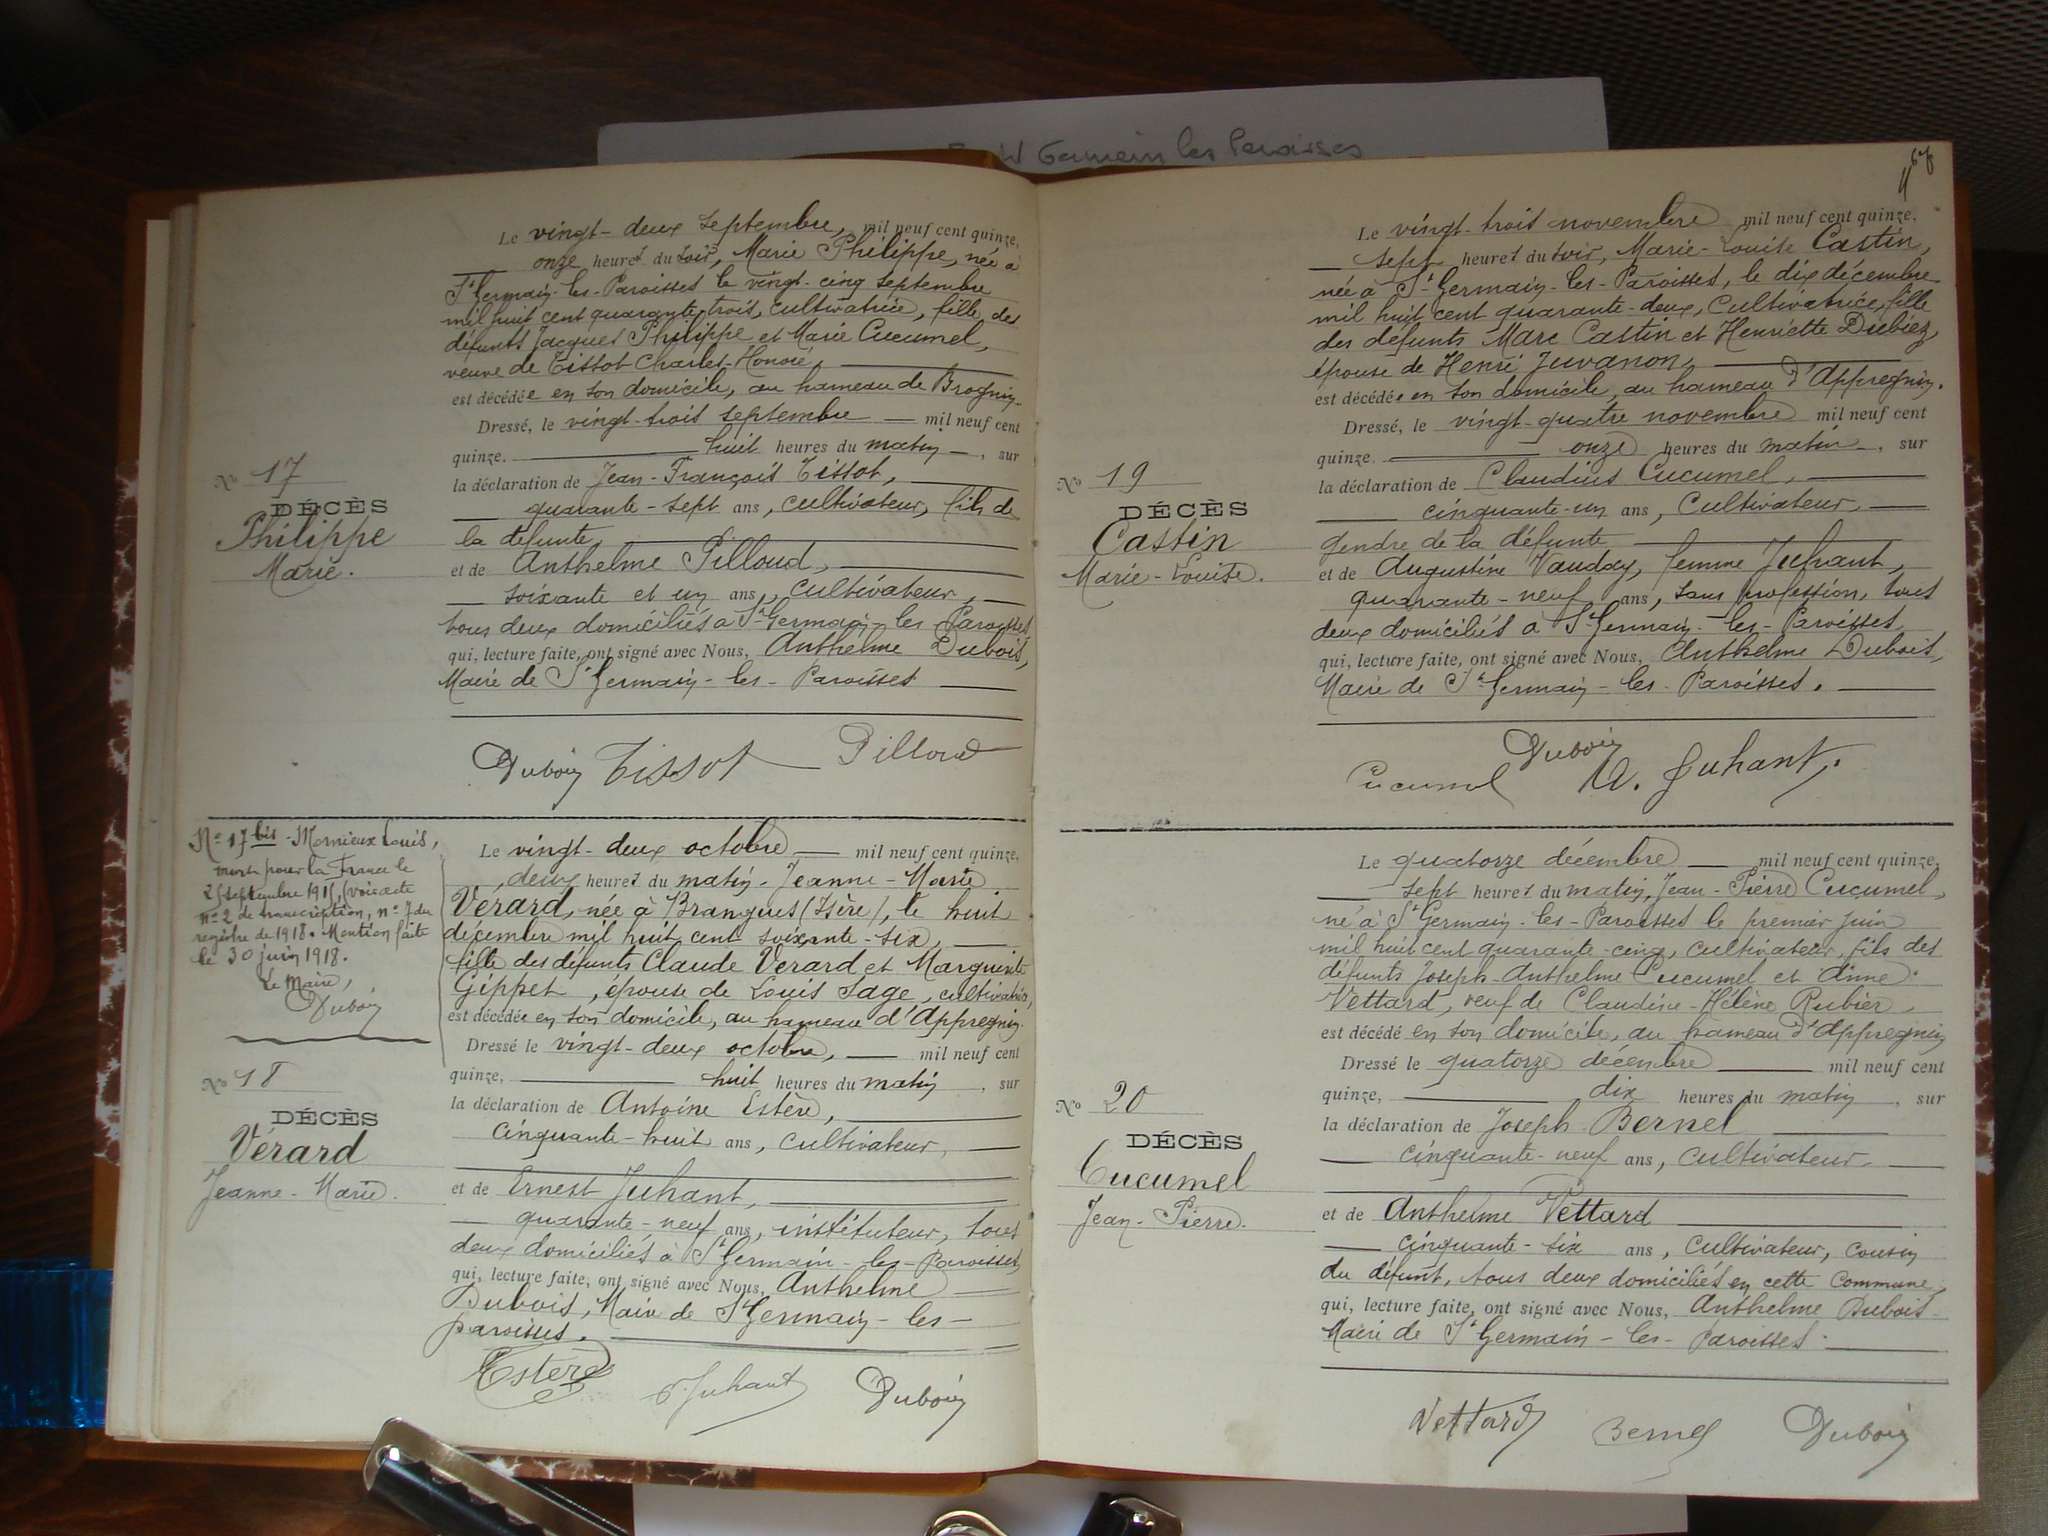 St Germain les Paroisses
Le vingt-deux septembre, mil neuf cent quinze,
onze heures du soir, Marie Philippe, née à
St Germain-les-Paroisses le vingt-cinq septembre
mil huit cent quarante trois, cultivatrice, fille des
défunts Jacques Philippe et Marie Cucumel,
veuve de Tissot Charles-Honoré,
est décédée en son domicile, au hameau de Brognin.
Dressé, le vingt-trois septembre mil neuf cent
quinze, huit heures du matin, sur
No 17
la déclaration de Jean-François Tissot,
DÉCÈS
quarante-sept ans, cultivateur, fils de
Philippe
la défunte,
Marie.
et de Anthelme Pilloud,
soixante et un ans, cultivateur,
tous deux domiciliés à St Germain-les-Paroisses
qui, lecture faite, ont signé avec Nous, Anthelme Dubois,
Maire de St Germain-les-Paroisses
Dubois Tissot Pilloud
No 17 bis - Mornieux Louis,
mort pour la France le
25 septembre 1915, (voir acte
no 2 de transcription, no 7 du
registre de 1918. Mention faite
le 30 juin 1918.
Le Maire,
Dubois
Le vingt-deux octobre mil neuf cent quinze,
deux heures du matin, Jeanne-Marie
Vérard, née à Brangues (Isère), le huit
décembre mil huit cent soixante-six,
fille des défunts Claude Vérard et Marguerite
Gippet, épouse de Louis Sage, cultivatrice,
est décédée en son domicile, au hameau d'Appregnin.
Dressé le vingt-deux octobre, mil neuf cent
No 18
quinze, huit heures du matin, sur
DÉCÈS
la déclaration de Antoine Estère,
Vérard
cinquante-huit ans, cultivateur,
Jeanne-Marie.
et de Ernest Juhant,
quarante-neuf ans, instituteur, tous
deux domiciliés à St Germain-les-Paroisses,
qui, lecture faite, ont signé avec Nous, Anthelme
Dubois, Maire de St Germain-les-
paroisses.
Estère E. Juhant Dubois
Le vingt-trois novembre mil neuf cent quinze,
sept heures du soir, Marie-Louise Castin,
née à St Germain-les-Paroisses, le dix décembre
mil huit cent quarante-deux, Cultivatrice, fille
des défunts Marc Castin et Henriette Dubiez,
épouse de Henri Juvanon,
est décédée en son domicile, au hameau d'Appregnin.
Dressé, le vingt-quatre novembre mil neuf cent
quinze, onze heures du matin, sur
No 19
la déclaration de Claudius Cucumel,
DÉCÈS
cinquante-un ans, Cultivateur,
Castin
gendre de la défunte
Marie-Louise.
et de Augustine Vauday, femme Juhant,
quarante-neuf ans, sans profession, tous
deux domiciliés à St Germain-les-Paroisses
qui, lecture faite, ont signé avec Nous, Anthelme Dubois,
Maire de St Germain-les-Paroisses.
Cucumel Dubois A. Juhant.
Le quatorze décembre mil neuf cent quinze,
sept heures du matin, Jean-Pierre Cucumel,
né à St Germain-les-Paroisses le premier juin
mil huit cent quarante-cinq, cultivateur, fils des
défunts Joseph-Anthelme Cucumel et Anne
Vettard, veuf de Claudine-Hélène Rubier,
est décédé en son domicile, au hameau d'Appregnin
Dressé le quatorze décembre mil neuf cent
No 20
quinze, dix heures du matin, sur
DÉCÈS
la déclaration de Joseph Bernel
Cucumel
cinquante-neuf ans, cultivateur,
Jean-Pierre.
et de Anthelme Vettard
cinquante-six ans, cultivateur, cousin
du défunt, tous deux domiciliés en cette commune,
qui, lecture faite, ont signé avec Nous, Anthelme Dubois
Maire de St Germain-les-Paroisses.
Vettard Bernel Dubois